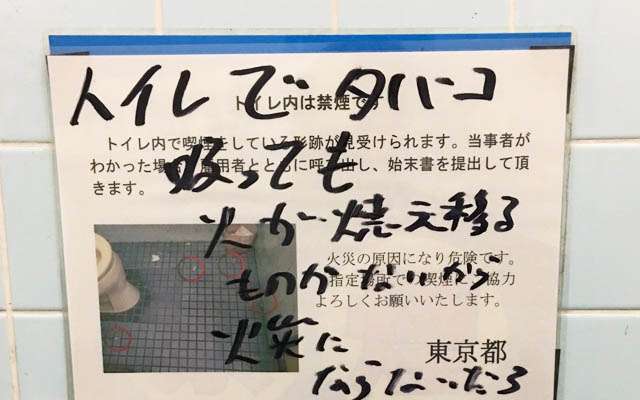 トイレでタバコ
吸っても
火が焼え移る
ものがないから
火災に
ならないだろ
トイレ内は禁煙です
トイレ内で喫煙をしている形跡が見受けられます。当事者が
わかった場合、用者とともに呼び出し、始末書を提出して頂
きます。
火災の原因になり危険です。
指定場所での喫煙にご協力
よろしくお願いいたします。
東京都